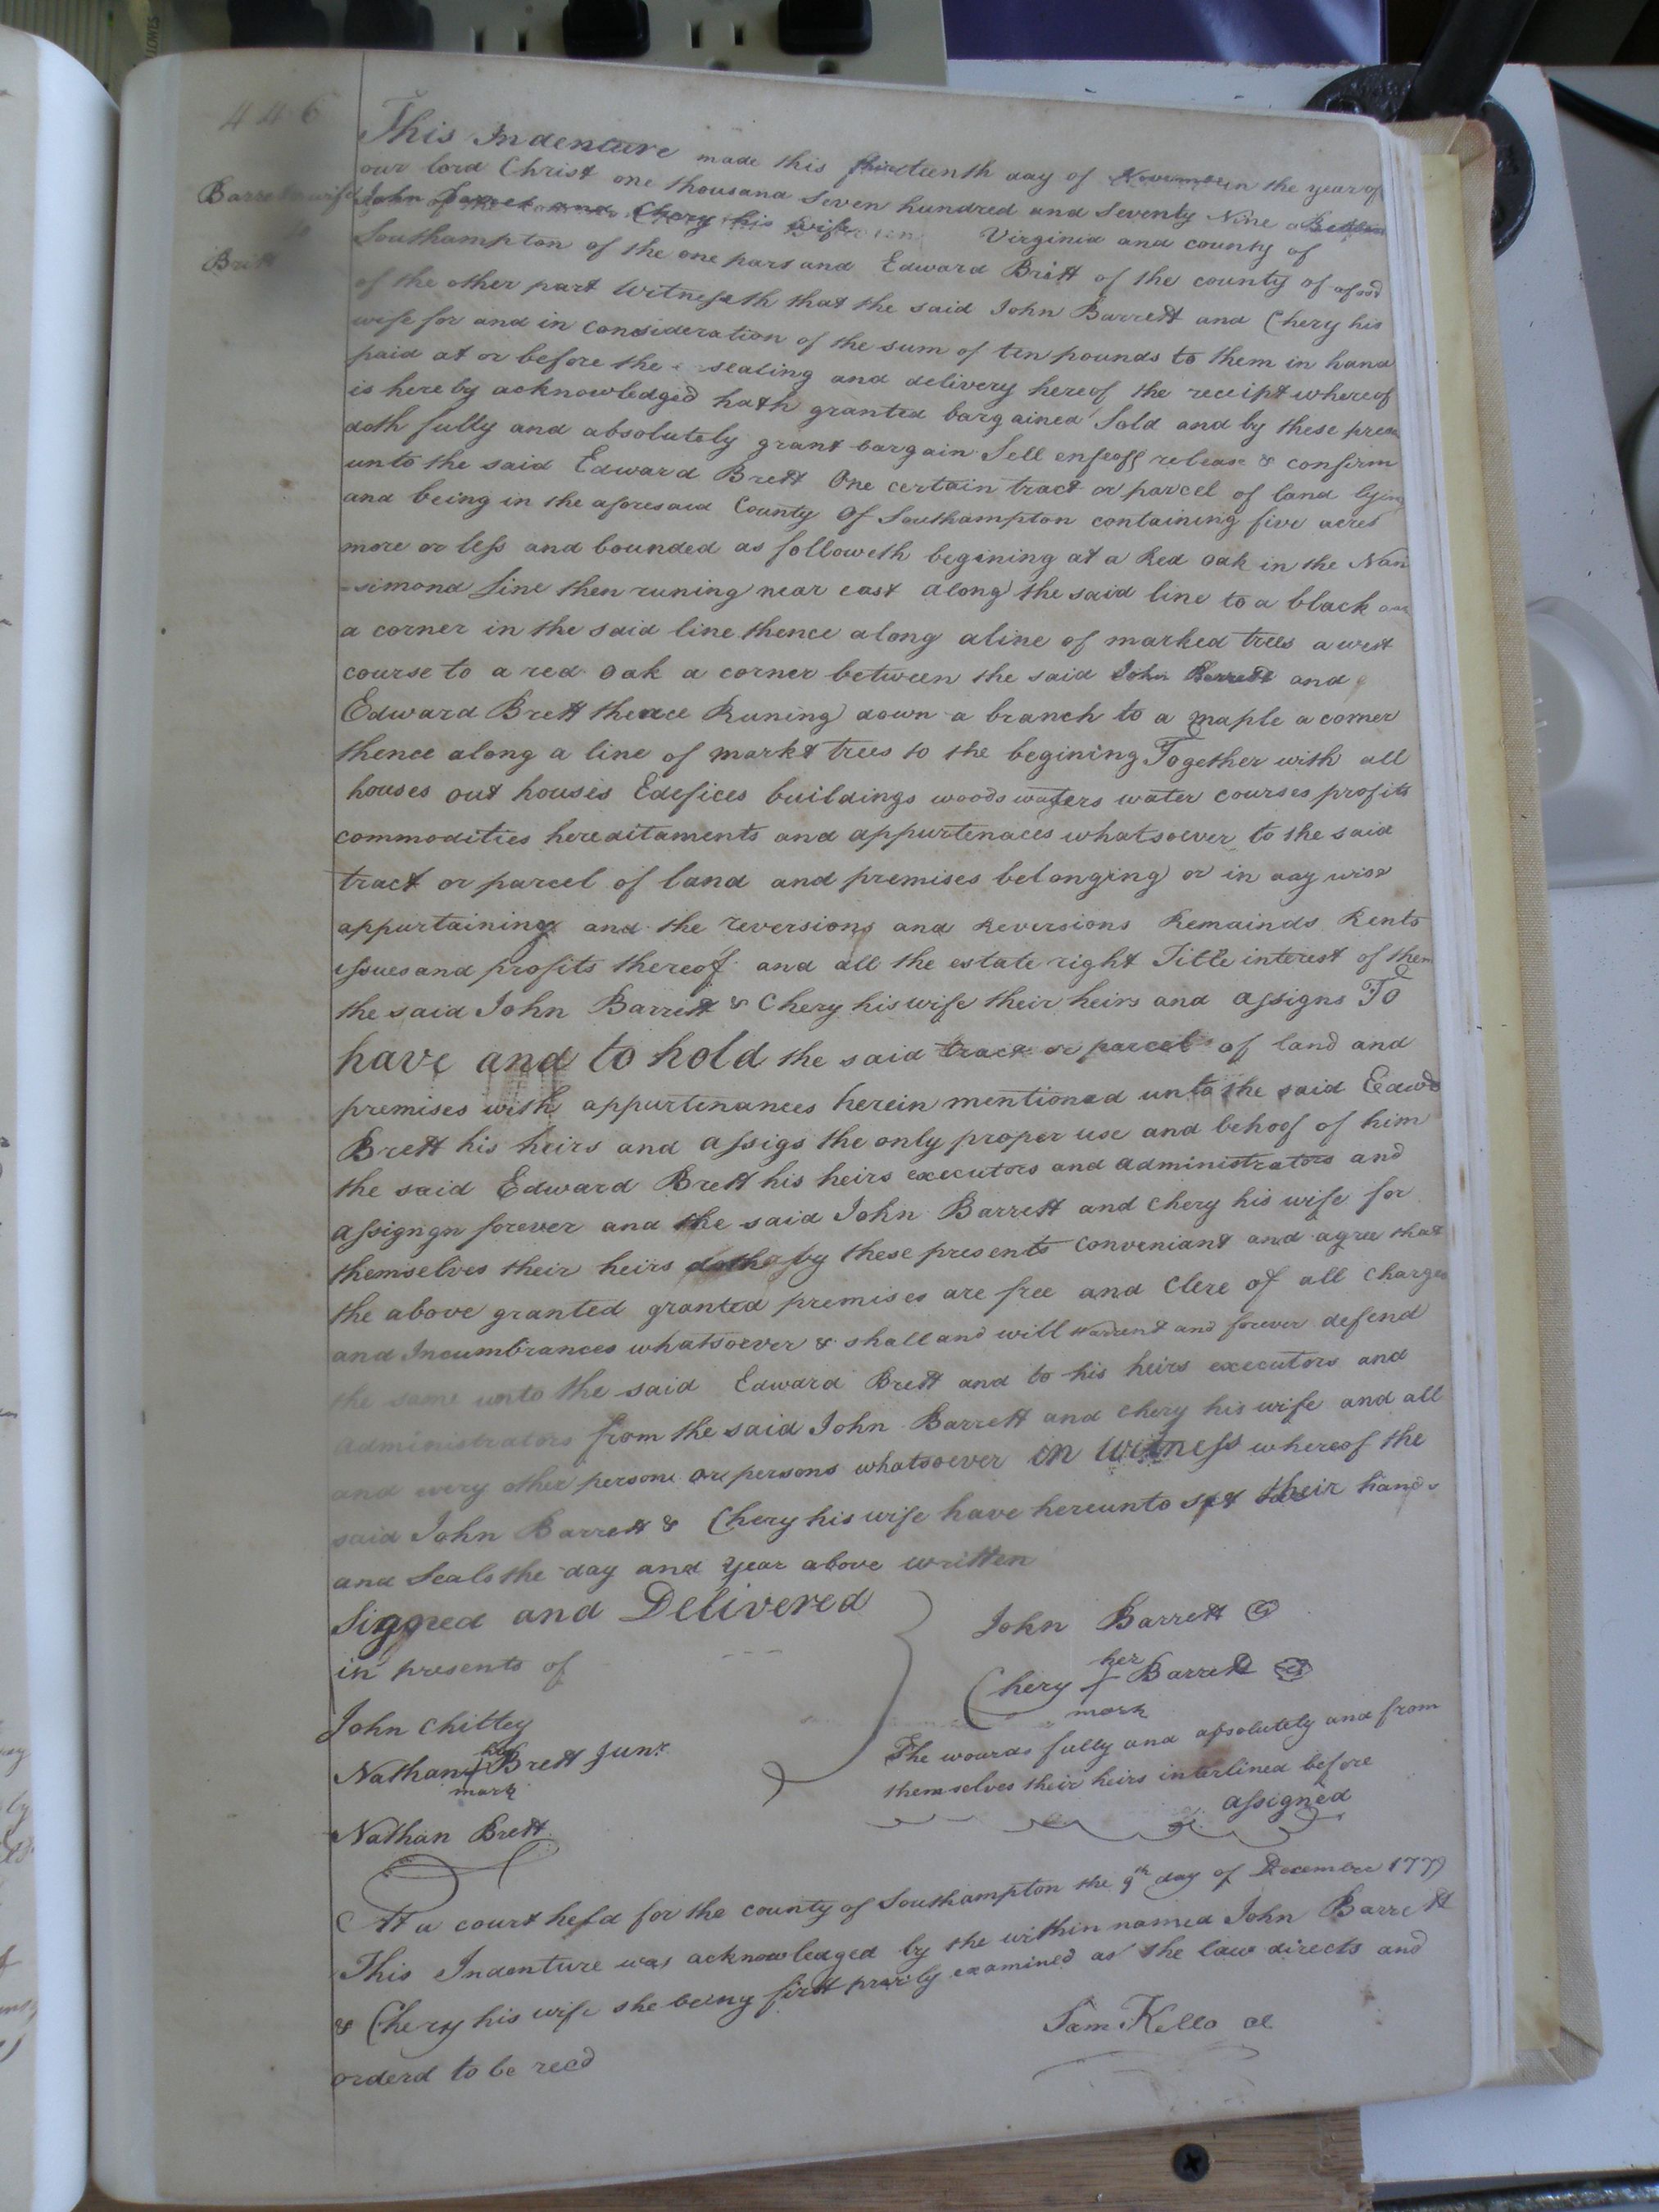 446
Barrett & wife
to
Britt
This Indenture made this thirteenth day of November in the year of
our lord Christ one thousand Seven hundred and Seventy Nine Between
John Barret and Chery his wife Virginia and county of
Southampton of the one part and Edward Britt of the county of afored
of the other part Witnesseth that the said John Barrett and Chery his
wife for and in consideration of the sum of ten pounds to them in hand
paid at or before the sealing and delivery hereof the receipt whereof
is hereby acknowledged hath granted bargained Sold and by these
doth fully and absolutely grant bargain Sell enfeoff release & confirm
unto the said Edward Brett One certain tract or parcel of land lying
and being in the aforesaid County Of Southampton containing five acres
more or less and bounded as followeth begining at a Red oak in the Nan
-simond line then runing near east along the said line to a black oak
a corner in the said line thence along a line of marked trees a west
course to a red oak a corner between the said John Barrett and
Edward Brett thence Runing down a branch to a maple a corner
thence along a line of markt trees to the begining Together with all
houses out houses Edefices buildings woods waters water courses profits
commodities hereditaments and appurtenaces whatsoever to the said
tract or parcel of land and premises belonging or in any wise
appurtaining and the reversions and Reversions Remainds Rents
issues and profits thereof and all the estate right Title interest of them
the said John Barrett & Chery his wife their heirs and assigns To
have and to hold the said tract or parcel of land and
premises with appurtinances herein mentioned unto the said Edwd
Brett his heirs and assigs the only proper use and behoof of him
the said Edward Brett his heirs executors and administrators and
assigngn forever and the said John Barrett and Chery his wife for
themselves their heirs doth by these presents conveniant and agree that
the above granted granted premises are free and Clere of all Charges
and Incumbrances whatsoever & shall and will warrent and forever defend
the same unto the said Edward Brett and to his heirs executors and
administrators from the said John Barrett and Chery his wife and all
and every other persone or persons whatsoever in Witness whereof the
said John Barrett & Chery his wife have hereunto set their hands
and Seals the day and Year above written
Signed and Delivered
in presents of
John Barrett
her
Chery Barrett
mark
John Chittey
his
Nathan Brett Junr
mark
Nathan Brett
The wourds fully and absolutely and from
themselves their heirs interlined before
assigned
At a court held for the county of Southampton the 9th day of December 1779
This Indenture was acknowledged by the within named John Barrett
& Chery his wife she being first privily examined as the law directs and
orderd to be recd
Sam Kello cl